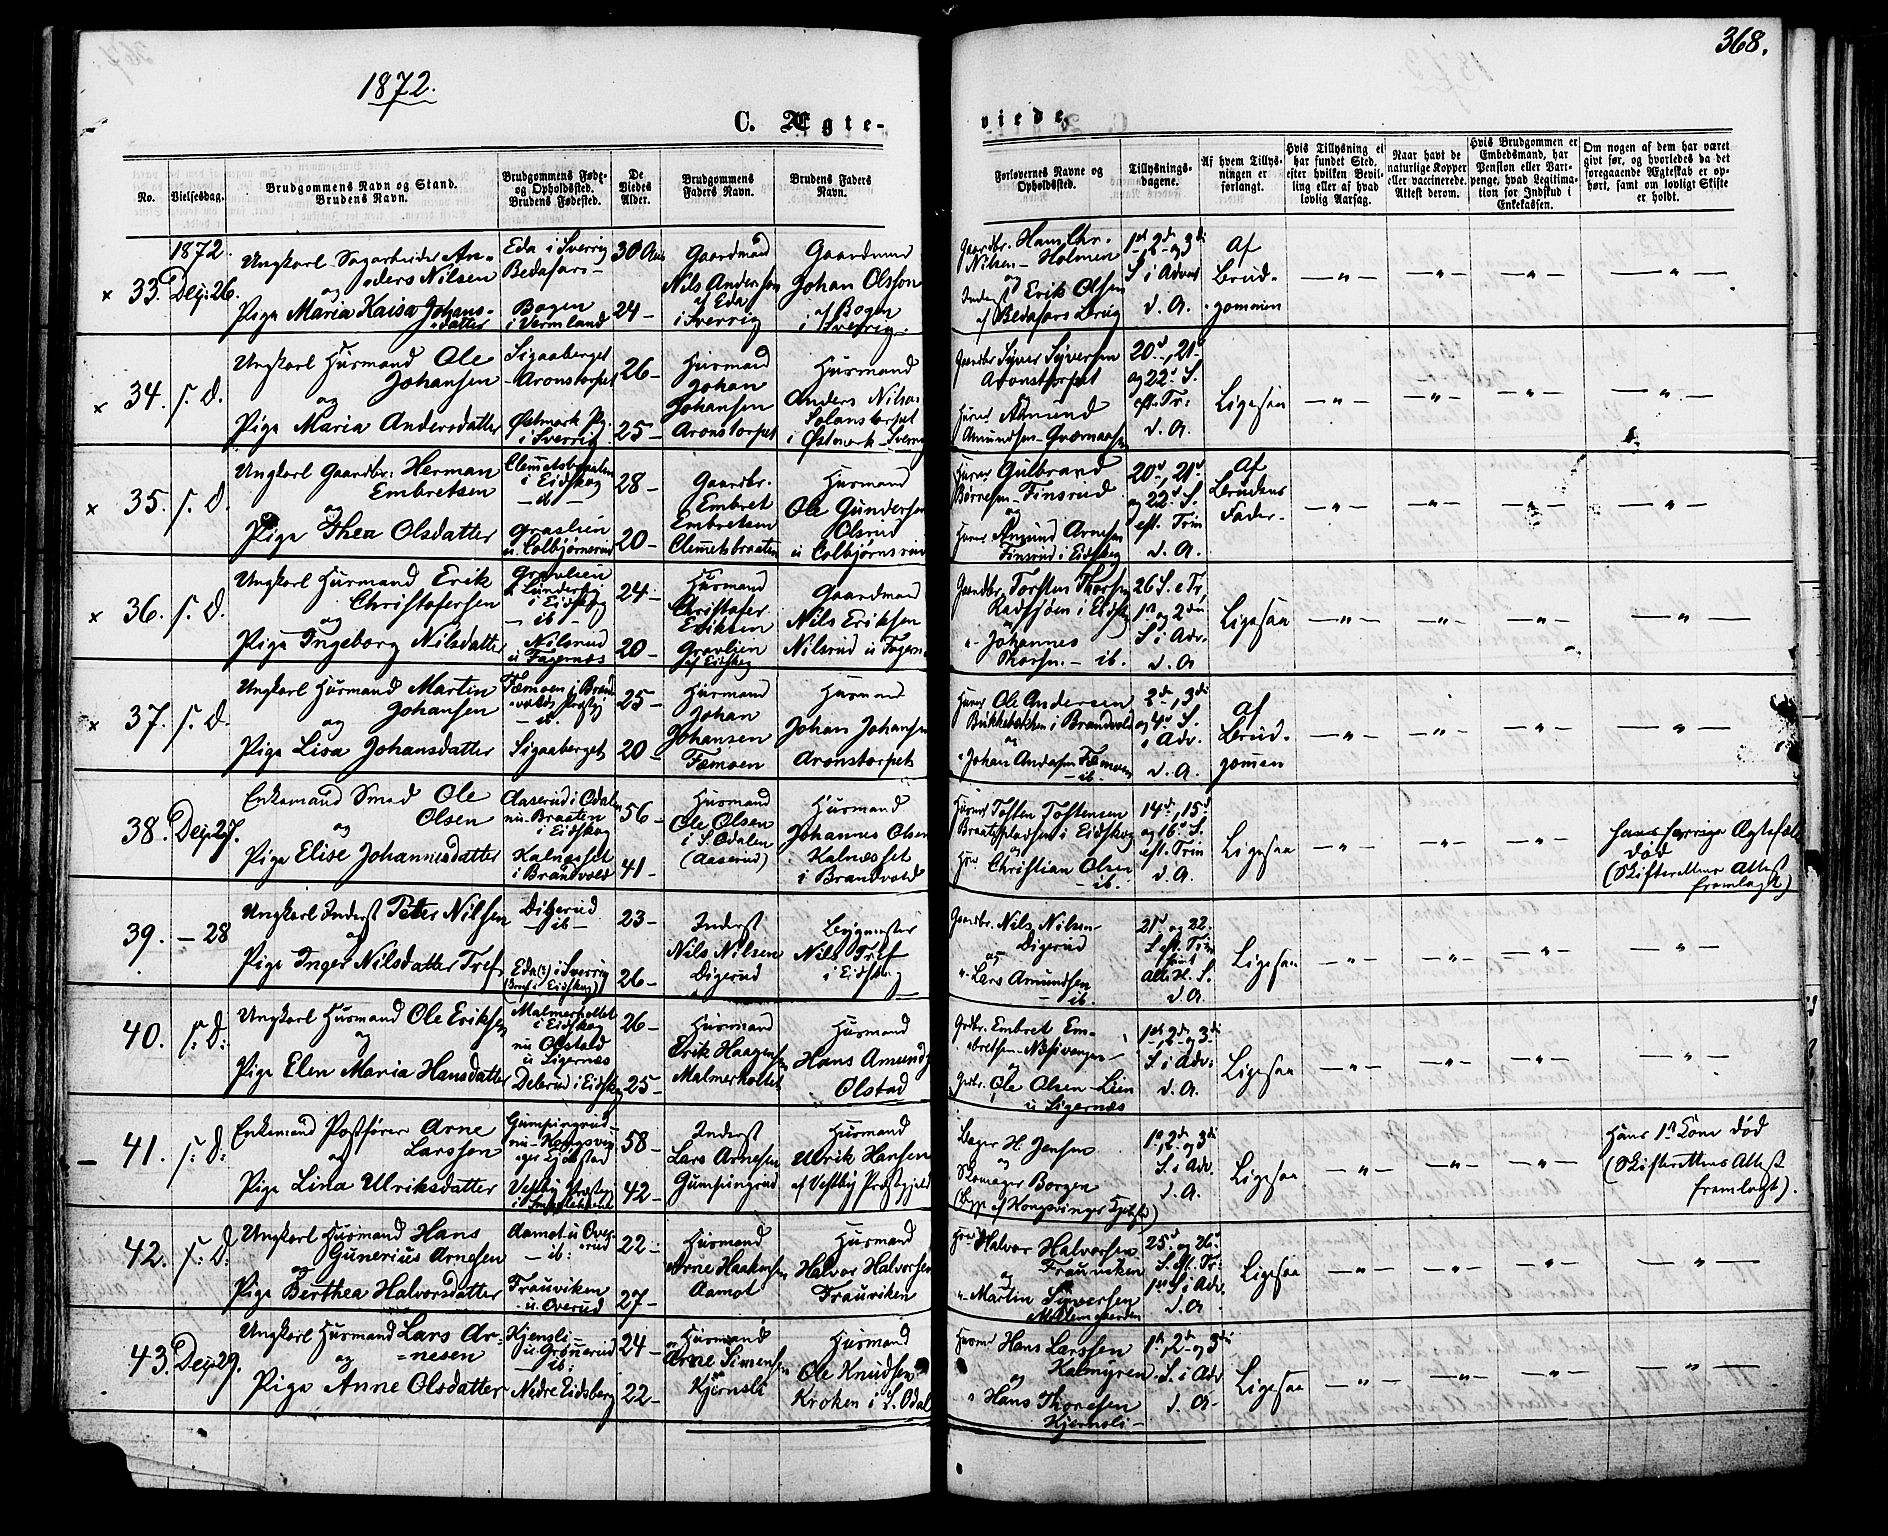 368.
1872.
C. Ægte-
viede.
No.
Vielsesdag.
Brudgommens Navn og Stand.
Brudens Navn.
Brudgommens Føde-
og Opholdssted.
Brudens Fødested.
De
Viedes
Alder.
Brudgommens
Faders Navn.
Brudens Faders
Navn.
Forlovernes Navne og
Opholdssted.
Tillysnings-
dagene.
Af hvem Tillys-
ningen er
forlangt.
Hvis Tillysning ei
har fundet Sted,
efter hvilken Bevil-
ling eller af hvad
lovlig Aarsag.
Naar havt de
naturlige Kopper
eller vaccinerede.
Attest derom.
Hvis Brudgommen er
Embedsmand, har
Pension eller Vart-
penge, hvad Legitima-
tion for Indskud i
Enkekassen.
Om nogen af dem har været
givt før, og hvorledes da det
foregaaende Ægteskab er op-
hørt, samt om lovligt Skifte
er holdt.
1872.
x 33. Dez: 26.
Ungkarl Sagarbeider An-
ders Nilsen
og
Pige Maria Kaisa Johans-
datter
Eda i Sverrig
Bedafors -
Bogen
i Vermland
30 Aar
24 -
Gaardmand
Nils Andersson
af Eda
i Sverrig
Gaardmand
Johan Olsson
af Bogen
i Sverrig.
Gaardbr. Hans Chr.
Nilsen - Holmen
og
Inderst Erik Olsen
af Bedafors Brug
1st, 2den og 3die
S. i Advent
d. A.
Af
Brud-
gommen
- " -
- " -
- " -
- " -
x 34. s. D.
Ungkarl Husmand Ole
Johansen
og
Pige Maria Andersdatter
Sigaaberget
- Aronstorpet
Østmark Pg.
i Sverrig
26 -
25 -
Husmand
Johan
Johansen
Aronstorpet
Husmand
Anders Nilsen
i Østmark - Sverrig
Gaardbr Syver Syversen
Aronstorpet
og
Husm Amund
Amundsen
20d, 21d
og 22d S.
eft. Tr:
d. A.
Ligesaa
- " -
- " -
- " -
- " -
x 35. s. D.
Ungkarl Gaardbr: Herman
Embretsen
og
Pige Thea Olsdatter
Clemetsbraaten
i Eidskog
- ib -
Graslien
u. Colbjørnsrud
28 -
20 -
Gaardbr.
Embret
Embretsen
Clemetsbraaten
Husmand
Ole Gundersen
Olsrud
u Colbjørnsrud
Husm Gulbrand
Børresen - Finsrud
og
Husm Amund Arnesen
Finsrud i Eidskog
20d, 21d
og 22d S.
eft. Trin
d. A.
Af
Brudens
Fader -
- " -
- " -
- " -
- " -
x 36. s. D.
Ungkarl Husmand Erik
Christofersen
og
Pige Ingeborg Nilsdatter
Gravlien
i Eidskog
- ib -
Nilsrud
u Fagernæs
24 -
20 -
Husmand
Christofer
Eriksen
Gravlien
af Eidskog
Gaardmand
Nils Eriksen
Nilsrud u Fagern.
Gaardbr Torsten Thorsen
Radsjøen i Eidsk
og
" Johannes
Thorsen - ib.
26 S. e Tr,
1st og 2den
S. i Adv.
d. A
Ligesaa
- " -
- " -
- " -
- " -
x 37. s. D.
Ungkarl Husmand Martin
Johansen
og
Pige Lisa Johansdatter
Fæmoen i Brand-
volds Præstgj
- ib -
Sigaaberget
25 -
20 -
Husmand
Johan
Johansen
Fæmoen
Husmand
Johan Johansen
Aronstorpet
Husm Ole Andersen
Bukkebakken i Brandvold
og
" Johan Andersen Fæmoen
- ib.
2den, 3die
og 4de S.
i Adv.
d. A.
Af
Brud-
gommen
- " -
- " -
- " -
- " -
38. Dez 27.
Enkemand Smed Ole
Olsen
og
Pige Elise Johannesdatter
Aaserud i Odalen
nu - Braaten
i Eidskog
Kalnæsset
i Brandvold
56 -
41 -
Husmand
Ole Olsen
i S. Odalen
(Aaserud)
Husmand
Johannes Olsen
Kalnæsset
i Brandvold
Husm Tosten Tostensen
Braatepladsen i Eidskog
og
Husm Christian Olsen
- ib.
14d, 15d
og 16d S.
eft. Trin
d. A.
Ligesaa
- " -
- " -
- " -
Hans forrige Ægtefælle
død
(Skifterettens Attest
fremlagt)
39. - 28
Ungkarl Inderst Peter Nilsen
og
Pige Inger Nilsdatter Træf
Digerud
- ib -
Eda (?) i Sverrig
(Boet i Eidskog)
23 -
26 -
Inderst
Nils Nilsen
Digerud
Bygmester
Nils Træf
i Eidskog
Gaardbr. Nils Nilsen
Digerud
og
" Lars Amundsen
- ib.
21d og 22.
S. eft. Trin
samt
Alle H. S.
d. A.
Ligesaa
- " -
- " -
- " -
- " -
40. s: D:
Ungkarl Husmand Ole Eriksen
og
Pige Elen Maria Hansdatter
Malmerholtet
i Eidskog
nu Olstad
u Sigernæs
Delerud i Eidskog
26 -
25 -
Husmand
Erik Haagensen
Malmerholtet
Husmand
Hans Amunds
Olstad
Grdbr. Embret Em-
bretsen -
og
Grdbr. Ole Olsen - Lien
u Sigernæs
1st, 2den og 3die
S. i Adv.
d. A.
Ligesaa
- " -
- " -
- " -
- " -
- 41. s: D:
Enkemand Postfører Arne
Larssen
og
Pige Lina Ulriksdatter
Gumpingrud -
nu - Kongsvin-
ger Kjøbstad
Vestby Præstgj
58 -
42 -
Inderst
Lars Arnesen
Gumpingrud
Husmand
Ulrik Hansen
af Vestby Præstegjeld
Bager H. Jensen
og
Skomager Borgen
(Begge af Kongsvinger Kjøbst)
1st, 2den og 3die
S. i Adv.
d. A.
Ligesaa
- " -
- " -
- " -
Hans 1st Kone død
(Skifterettens Attest
fremlagt).
42. s: D.
Ungkarl Husmand Hans
Gunerius Arnesen
og
Pige Berthea Halvorsdatter
Aamot u Over-
rud
- ib:
Frauviken
- u. Overud
22 -
27 -
Husmand
Arne Haakensen
Aamot
Husmand
Halvor Halvorsen
Frauviken
Husm Halvor Halvorsen
Frauviken
og
" Martin Syversen
25d og 26d
S. eft. Tr.
1st S i Adv.
d. A.
Ligesaa
- " -
- " -
- " -
- " -
43. Dez 29.
Ungkarl Husmand Lars Ar-
nesen
og
Pige Anne Olsdatter
Kjensli -
u. Grønnerud
- ib:
Nedre Eidsberg
24 -
22 -
Husmand
Arne Simensen
Kjernsli
Husmand
Ole Knudsen
Kroken i S. Odal
Husm Hans Larssen
Kalmyren
og
" Hans Thoresen
Kjernsli -
1st, 2den og 3die
S. i Adv
d. A -
Ligesaa
- " -
- " -
- " -
- " -